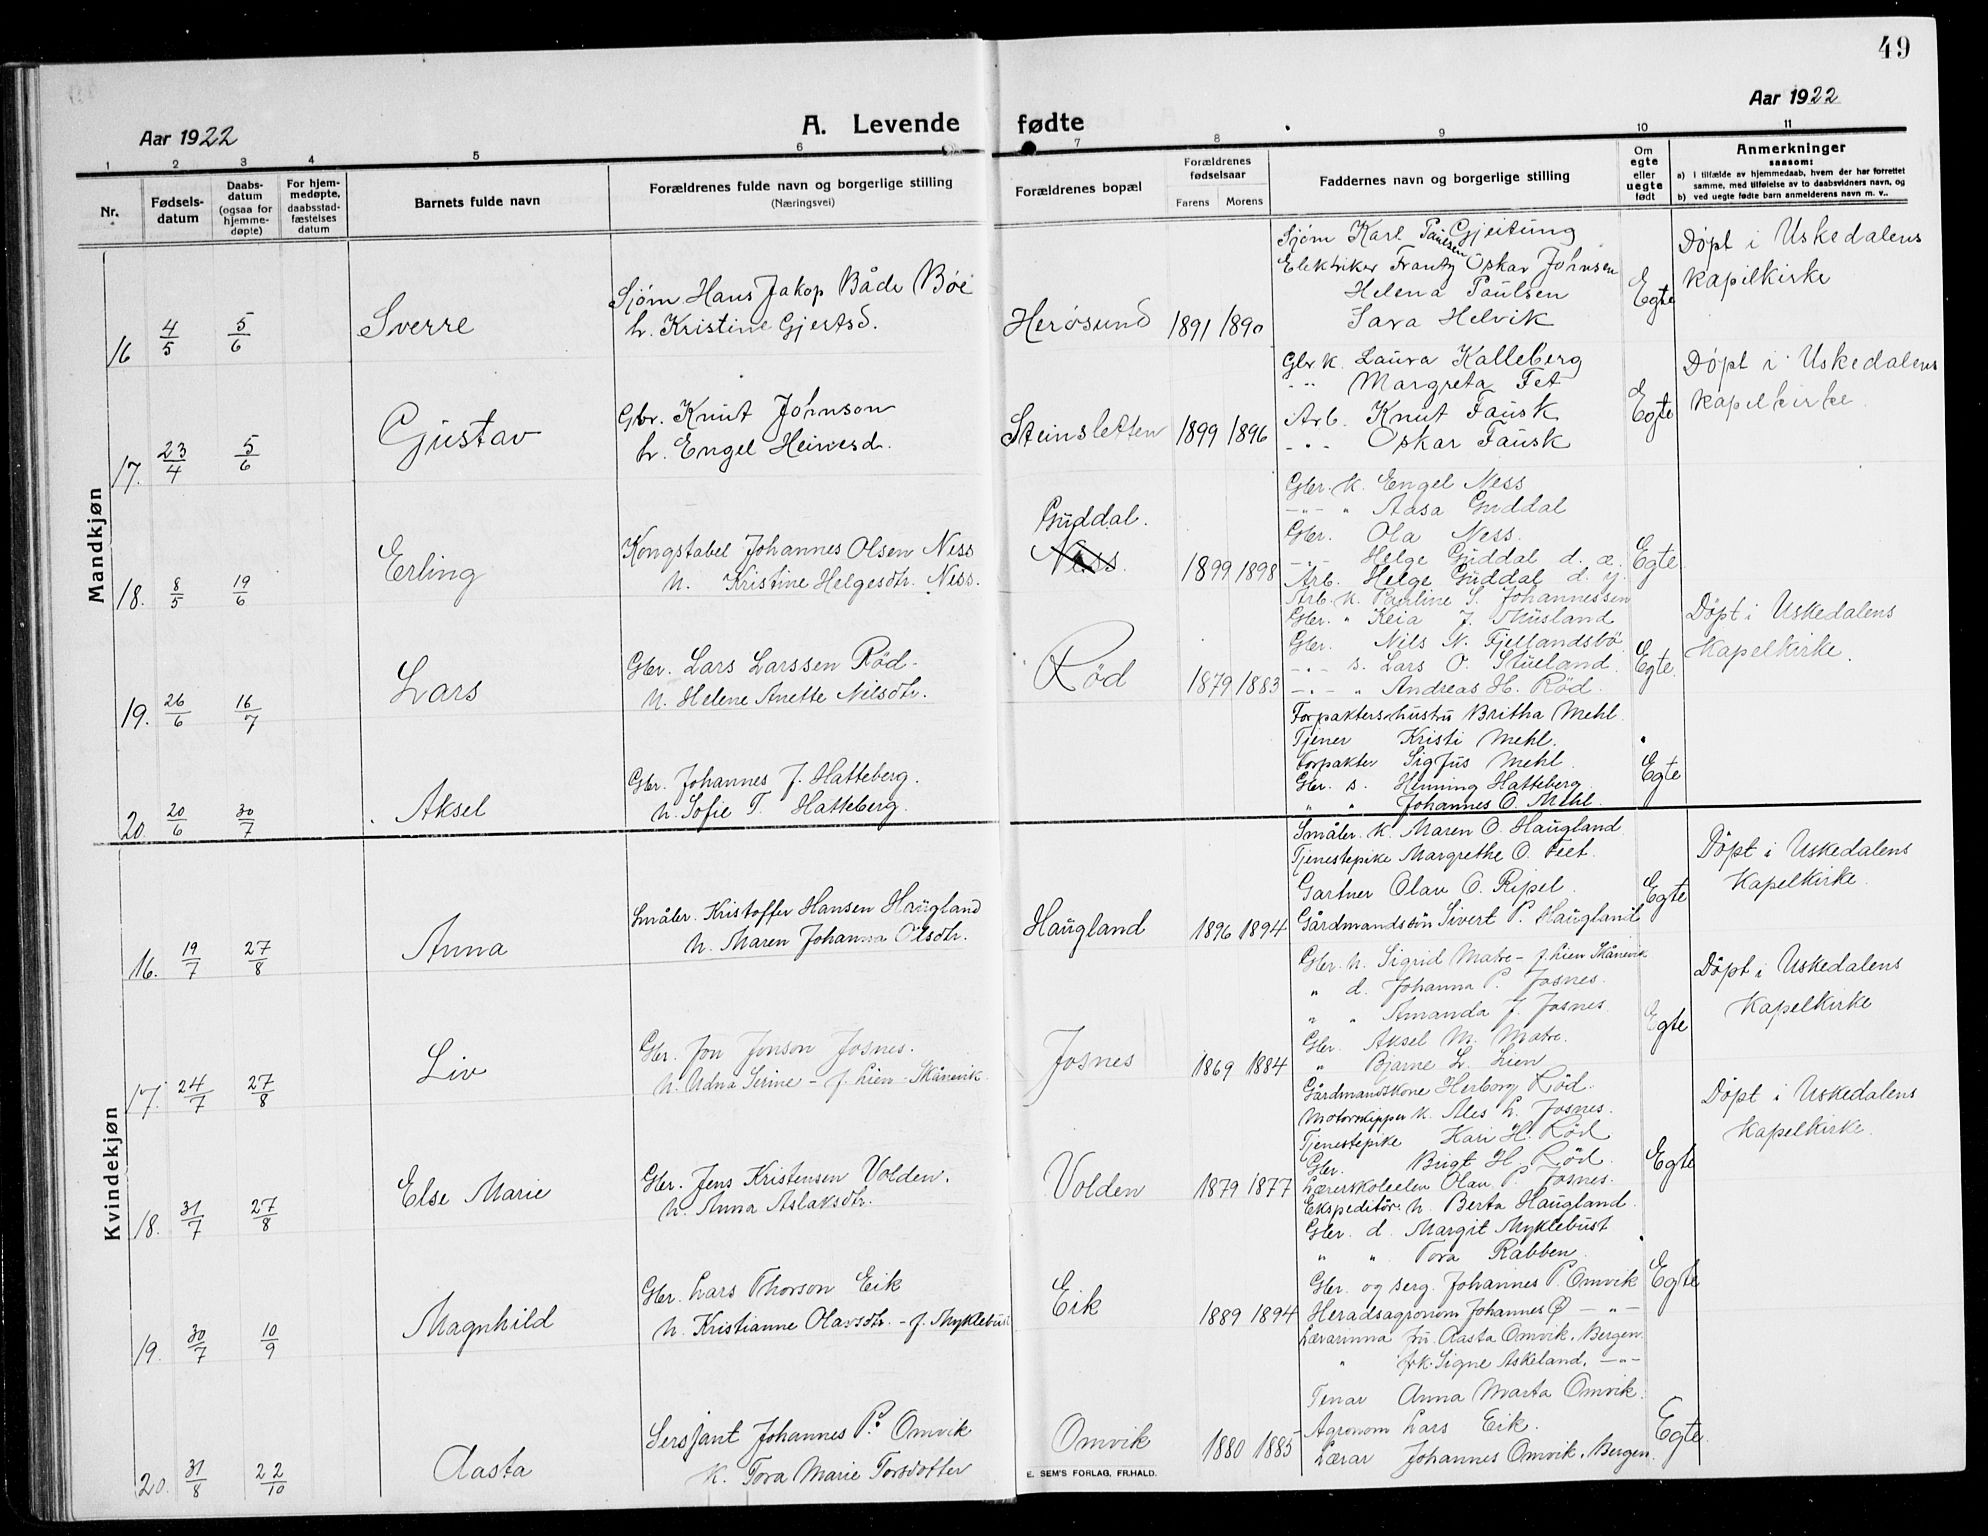 49
Aar 1922
A. Levende fødte
Aar 1922
1 2 3 4 5 6 7 8 9 10 11
Nr.
Fødsels-
datum
Daabs-
datum
(ogsaa for
hjemme-
døpte)
For hjem-
medøpte,
daabsstad-
fæstelses
datum
Barnets fulde navn
Forældrenes fulde navn og borgerlige stilling
(Næringsvei)
Forældrenes bopæl
Forældrenes
fødselsaar
Farens Morens
Faddernes navn og borgerlige stilling
Om
egte
eller
uegte
født
Anmerkninger
saasom:
a) i tilfælde av hjemmedaab, hvem der har forrettet
samme, med tilføielse av to daabsvidners navn, og
b) ved uegte fødte barn anmelderens navn m. v..
Mandkjøn
16 4/5 5/6 Sverre
Sjøm Hans Jakop Både Böe
h. Kristine Gjertsd.
Herøsund 1891 1890
Sjøm Karl Paulsen Gjeitung
Elektriker Frantz Oskar Johnsen
Helena Paulsen
Sara Helvik
Egte
Døpt i Uskedalens
Kapelkirke
17. 23/4 5/6 Gustav
Gbr. Knut Johnson
h. Engel Heinesd.
Steinsletten 1899 1896
Gbr. k. Laura Kalleberg
-"- Margreta Fet
Arb. Knut Fausk
-"- Oskar Fausk
Egte
Døpt i Uskedalens
Kapelkirke
18. 8/5 19/6 Erling
Kongstabel Johannes Olsen Ness
h. Kristine Helgesdtr. Ness.
Guddal.
Ness. 1899 1898
Gbr. k. Engel Ness
-"- " Aasa Guddal
Gbr. Ola Ness.
-"- Helge Guddal d. æ.
Arb. Helge Guddal d. y.
Egte
19. 26/6 16/7 Lars
Gbr. Lars Larssen Röd.
h. Helene Anette Nilsdtr.
Röd 1879 1883
Arb. k. Pauline S. Johannessen
Gbr. " Keia J. Musland
Gbr. Nils N. Fjellandsbö
-"- s. Lars O. Stueland.
-"- " Andreas H. Röd.
Egte.
Döpt i Uskedalens
Kapelkirke.
20. 20/6 30/7 Aksel
Gbr. Johannes J. Hatteberg.
h. Sofie T. Hatteberg.
Forpaktershustru Britha Mehl.
Tjener Kristi Mehl.
Forpakter Sigfus Mehl.
Gbr. s. Henning Hatteberg
" " Johannes O. Mehl.
Egte
Kvindekjøn
16. 19/7 27/8 Anna
Småbr. Kristoffer Hansen Haugland
h. Maren Johanna Olsdtr.
Haugland 1896 1894
Småbr. k. Maren O. Haugland.
Tjenestepike Margrethe O. Feet.
Gartner Olav O. Ripel.
Gårdmandssön Sivert P. Haugland
Egte
Döpt i Uskedalens
Kapelkirke.
17. 24/7 27/8 Liv
Gbr. Jon Jonson Josnes.
h. Adna Serine - f. Lien - Skånevik.
Josnes 1869 1884
Gbr. h. Sigrid Matre - f. Lien Skånevik
" d. Johanna P. Josnes.
" " Amanda J. Josnes
Gbr. Aksel M. Matre.
" Bjarne L. Lien
Egte
Döpt i Uskedalens
Kapelkirke
18. 31/7 27/8 Else Marie
Gbr. Jens Kristensen Volden.
h. Anna Aslaksdtr.
Volden 1879 1877
Gårdmandskone Herborg Röd.
Motorskipper k. Ales L. Josnes.
Tjenestepike Kari H. Röd
Gbr. Brigt H. Röd.
Lærerskoleelev Olav P. Josnes.
Egte
Döpt i Uskedalens
Kapelkirke.
19. 30/7 10/9 Magnhild
Gbr. Lars Thorson Eik
h. Kristianne Olavsdtr. - f. Myklebust
Eik 1889 1894
Ekspeditör h. Berta Haugland.
Gbr. d. Margit Myklebust
" " Tora Rabben.
Gbr. og serg. Johannes P. Omvik
Heradsagronom Johannes Ø -"-
Egte
20. 31/8 22/10 Aasta
Sersjant Johannes P. Omvik
k. Tora Marie Torsdotter
Omvik 1880 1885
Lærarinna fru Aasta Omvik, Bergen.
" frk. Signe Askeland, -"-
Tenar Anna Marta Omvik.
Agronom Lars Eik.
Lærar Johannes Omvik, Bergen.
Egte.
E. SEM'S FORLAG, FR.HALD.